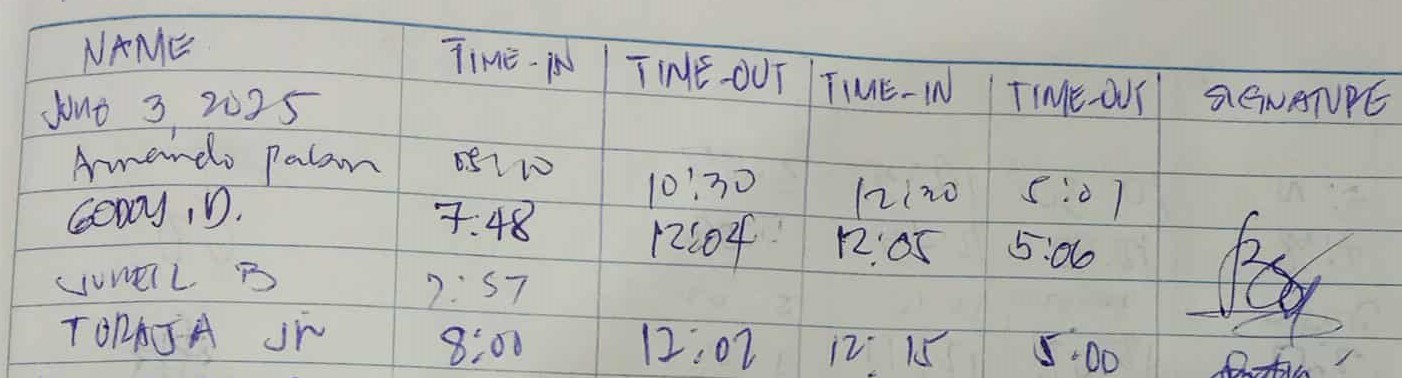 NAME TIME-IN TIME-OUT TIME-IN TIME-OUT SIGNATURE
JUNE 3, 2025
Armando 10:30 12:20 5:01
GODOY, D. 7:48 12:04 12:05 5:06
JUNEIL B 7:57
TORAJA JR 8:00 12:02 12:15 5:00